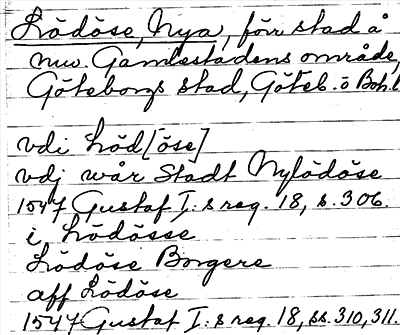 Lödöse, Nya, förr stad å
nuv. Gamlestadens område,
Göteborgs stad, Göteb. o Boh. l
vdi Löd[öse]
vdj wår Stadt Nylödöse
1547 Gustaf I:s reg. 18, s. 306.
i Lödösse
Lödöse Borgere
aff Lödöse
1547 Gustaf I:s reg. 18, ss. 310, 311.